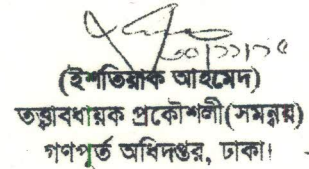 ৩০/১১/১৫
(ইশতিয়াক আহমেদ)
তত্ত্বাবধায়ক প্রকৌশলী(সমন্বয়)
গণপূর্ত অধিদপ্তর, ঢাকা।